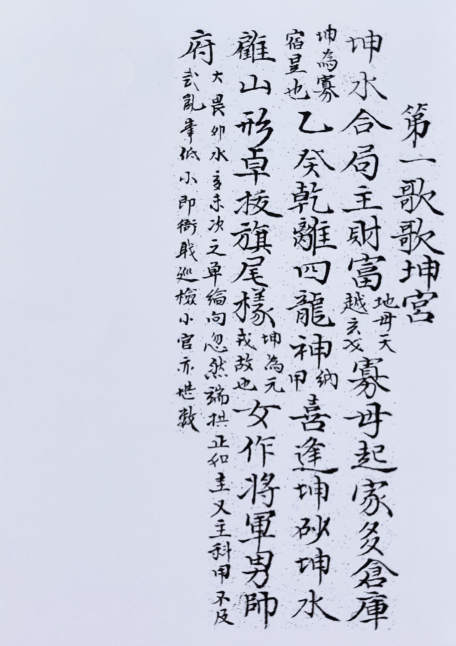 第一歌歌坤宮
坤水合局主財富地母天越亥文寡母起家多倉庫
坤為寡宿星也乙癸乾離四龍神納甲喜逢坤砂坤水
離山形卓拔旗尾樣坤為元戎故也女作將軍男帥
府大畏卯水亥未次之單論向忽然端拱正和主又主科用不及
武亂峯低小即衙戢巡檢小官亦堪数